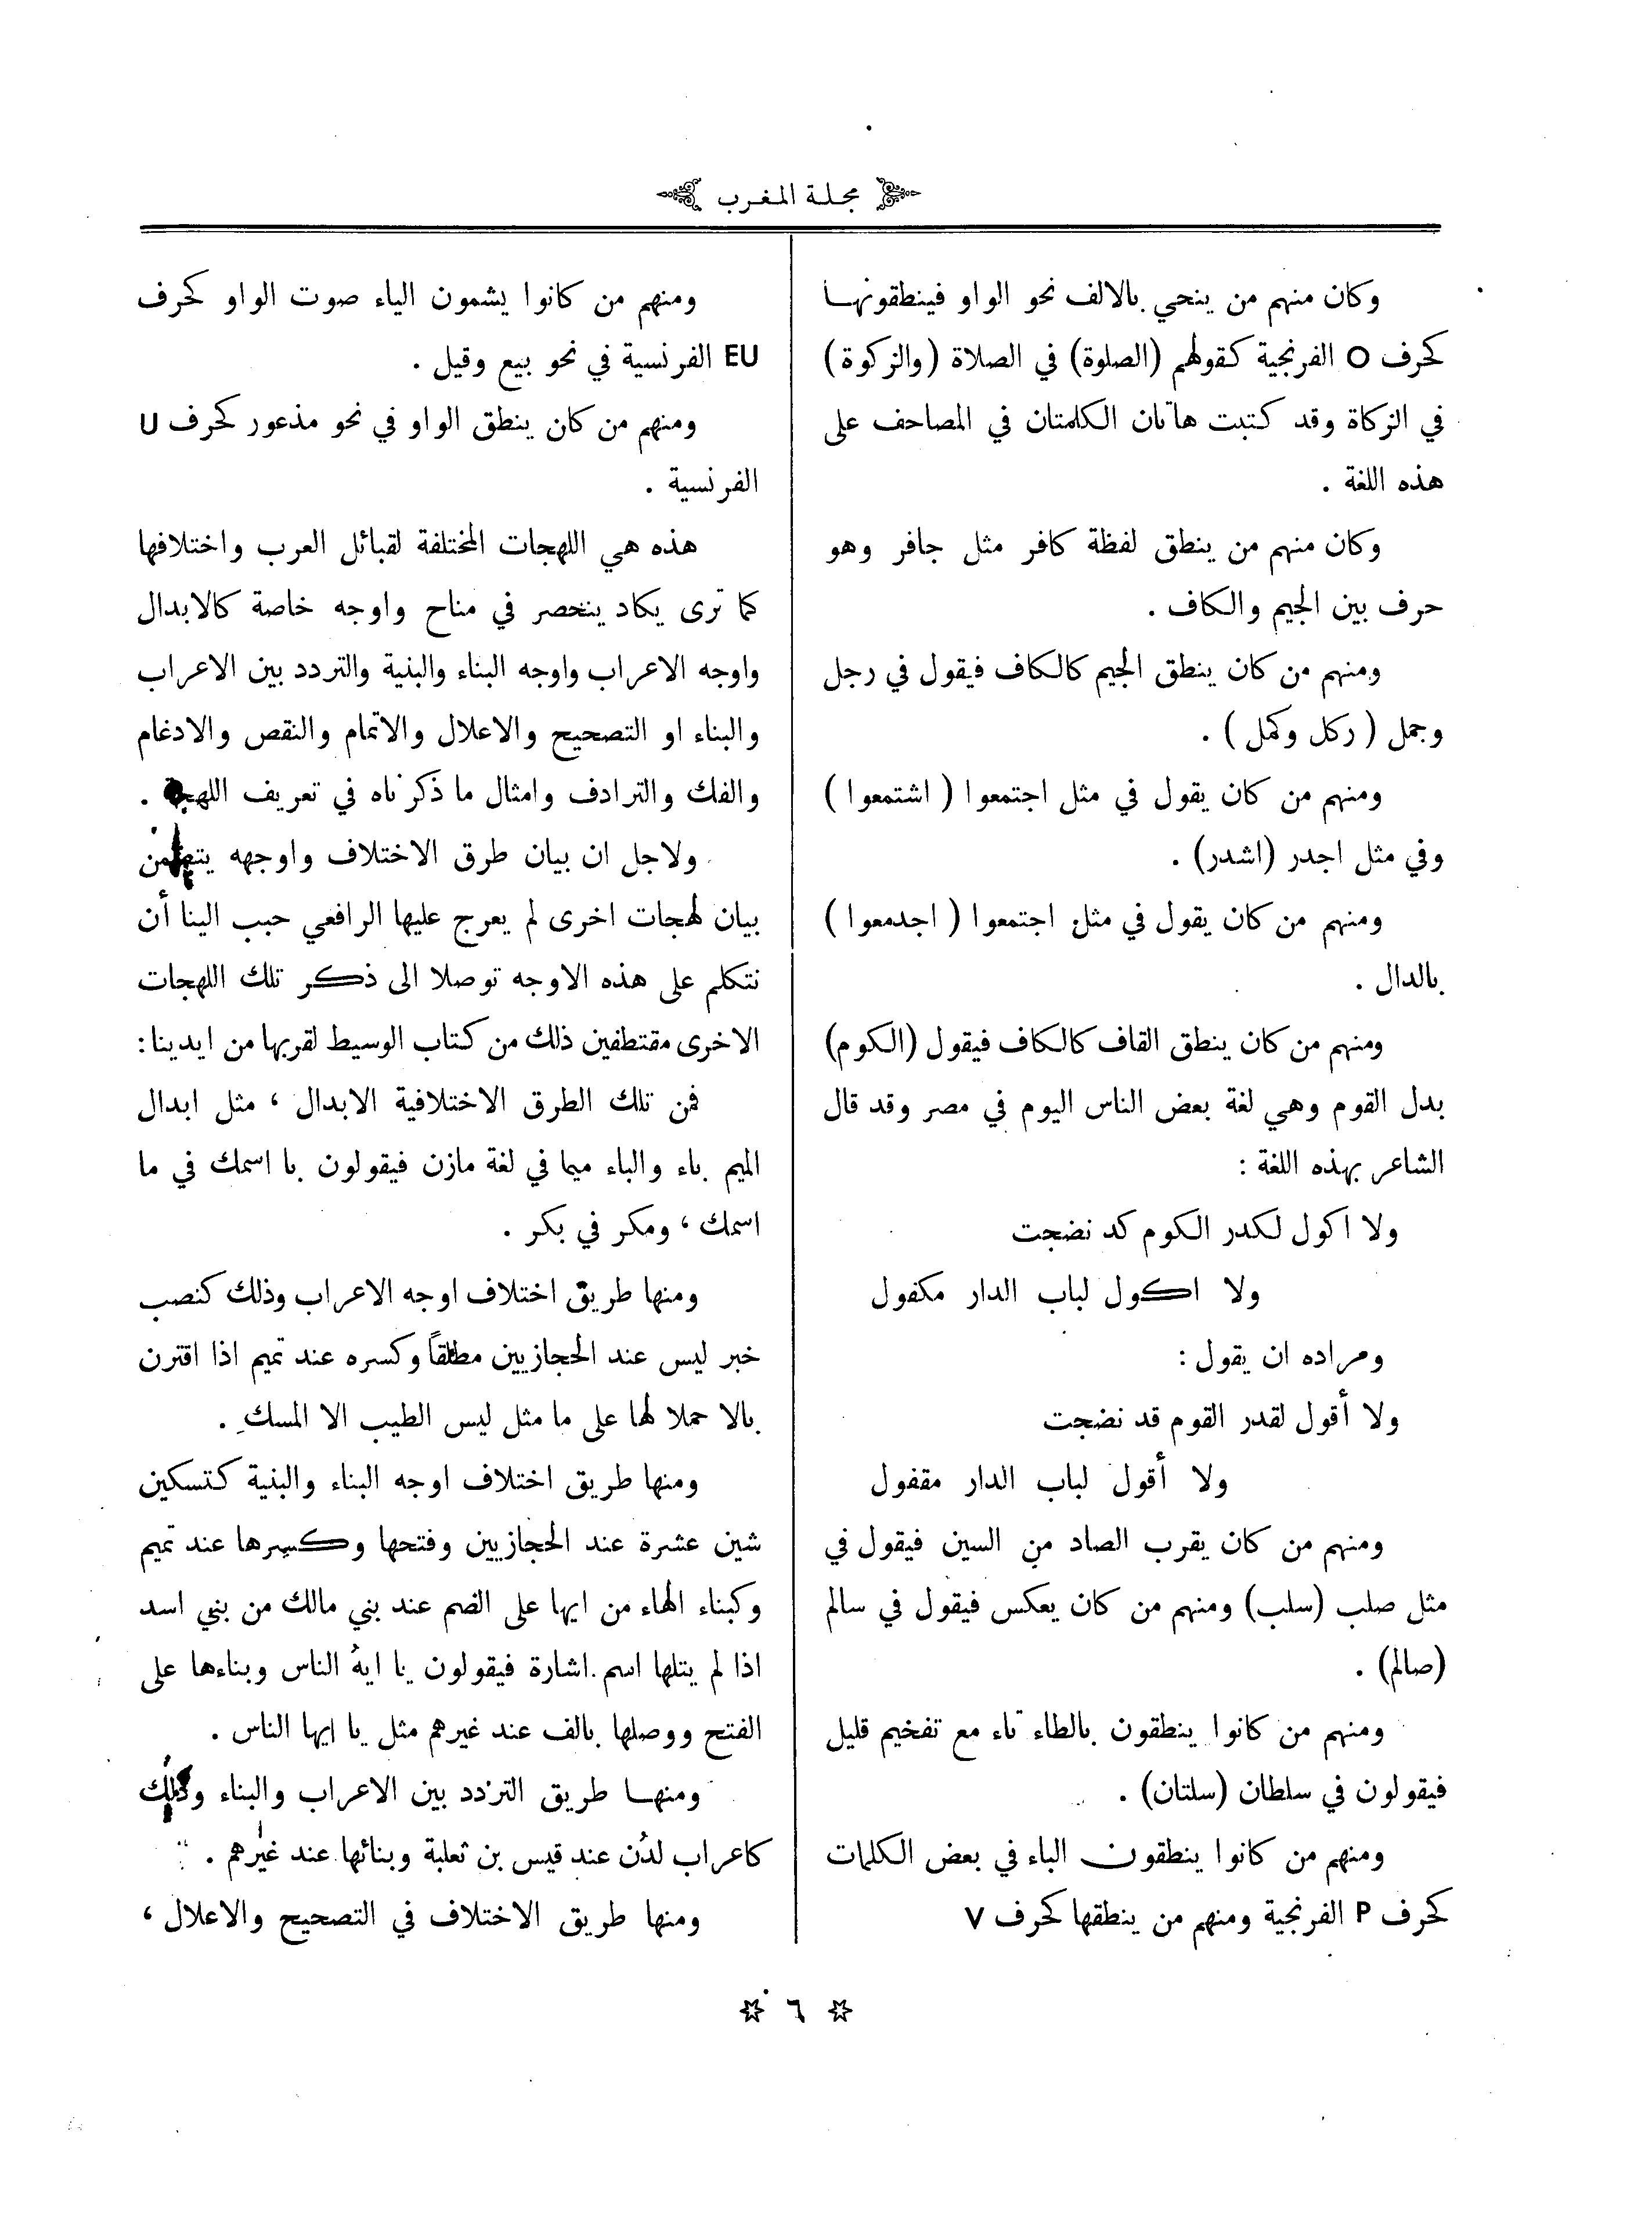 مجلة المغرب
وكان منهم من ينحي بالالف نحو الواو فينطقونها
كحرف O الفرنجية كقولهم (الصلوة) في الصلاة (والزكوة)
في الزكاة وقد كتبت هاتان الكلمتان في المصاحف على
هذه اللغة .
وكان منهم من ينطق لفظة كافر مثل جافر وهو
حرف بين الجيم والكاف .
ومنهم من كان ينطق الجيم كالكاف فيقول في رجل
وجمل ( ركل وكمل ) .
ومنهم من كان يقول في مثل اجتمعوا ( اشتمعوا )
وفي مثل اجدر (اشدر) .
ومنهم من كان يقول في مثل اجتمعوا ( اجدمعوا )
بالدال .
ومنهم من كان ينطق القاف كالكاف فيقول (الكوم)
بدل القوم وهي لغة بعض الناس اليوم في مصر وقد قال
الشاعر بهذه اللغة :
ولا اكول لكدر الكوم كد نضجت
ولا اكول لباب الدار مكفول
ومراده ان يقول :
ولا أقول لقدر القوم قد نضجت
ولا أقول لباب الدار مقفول
ومنهم من كان يقرب الصاد من السين فيقول في
مثل صلب (سلب) ومنهم من كان يعكس فيقول في سالم
(صالم) .
ومنهم من كانوا ينطقون بالطاء تاء مع تفخيم قليل
فيقولون في سلطان (سلتان) .
ومنهم من كانوا ينطقون الباء في بعض الكلمات
كحرف P الفرنجية ومنهم من ينطقها كحرف V
ومنهم من كانوا يشمون الياء صوت الواو كحرف
EU الفرنسية في نحو بيع وقيل .
ومنهم من كان ينطق الواو في نحو مذعور كحرف U
الفرنسية .
هذه هي اللهجات المختلفة لقبائل العرب واختلافها
كما ترى يكاد ينحصر في مناح واوجه خاصة كالابدال
واوجه الاعراب واوجه البناء والبنية والتردد بين الاعراب
والبناء او التصحيح والاعلال والاتمام والنقص والادغام
والفك والترادف وامثال ما ذكرناه في تعريف اللهجة .
ولاجل ان بيان طرق الاختلاف واوجهه يتضمن
بيان لهجات اخرى لم يعرج عليها الرافعي حبب الينا أن
نتكلم على هذه الاوجه توصلا الى ذكر تلك اللهجات
الاخرى مقتطفين ذلك من كتاب الوسيط لقربها من ايدينا :
فمن تلك الطرق الاختلافية الابدال ، مثل ابدال
الميم باء والباء ميما في لغة مازن فيقولون با اسمك في ما
اسمك ، ومكر في بكر .
ومنها طريق اختلاف اوجه الاعراب وذلك كنصب
خبر ليس عند الحجازيين مطلقاً وكسره عند تميم اذا اقترن
بالا حملا لها على ما مثل ليس الطيب الا المسكِ .
ومنها طريق اختلاف اوجه البناء والبنية كتسكين
شين عشرة عند الحجازيين وفتحها وكسرها عند تميم
وكبناء الهاء من ايها على الضم عند بني مالك من بني اسد
اذا لم يتلها اسم اشارة فيقولون يا ايهُ الناس وبناءها على
الفتح ووصلها بالف عند غيرهم مثل يا ايها الناس .
ومنها طريق التردد بين الاعراب والبناء وذلك
كاعراب لدُن عند قيس بن ثعلبة وبنائها عند غيرهم .
ومنها طريق الاختلاف في التصحيح والاعلال ،
٦